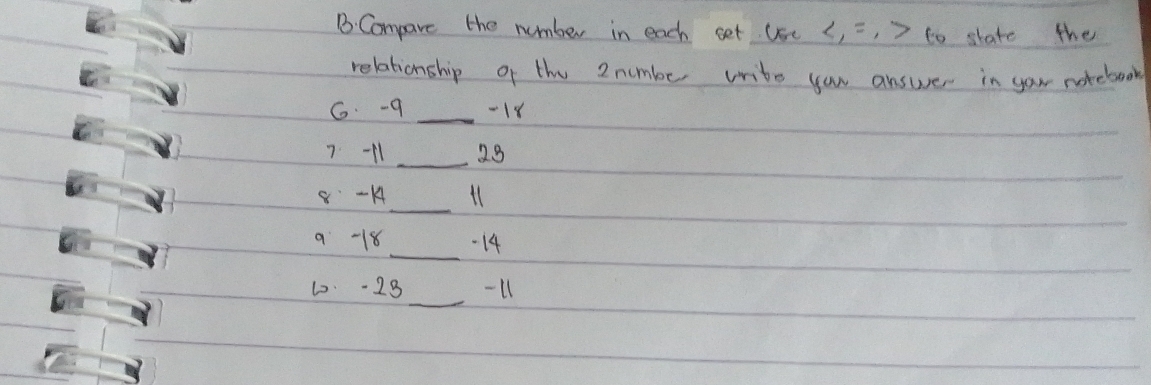 B. Compare the number in each set. Use <, =, > to state the
relationship of the 2 number write your answer in your notebook
6. -9 ___ -18
7. -11 ___ 23
8. -14 ___ 11
9. -18 ___ -14
10. -23 ___ -11